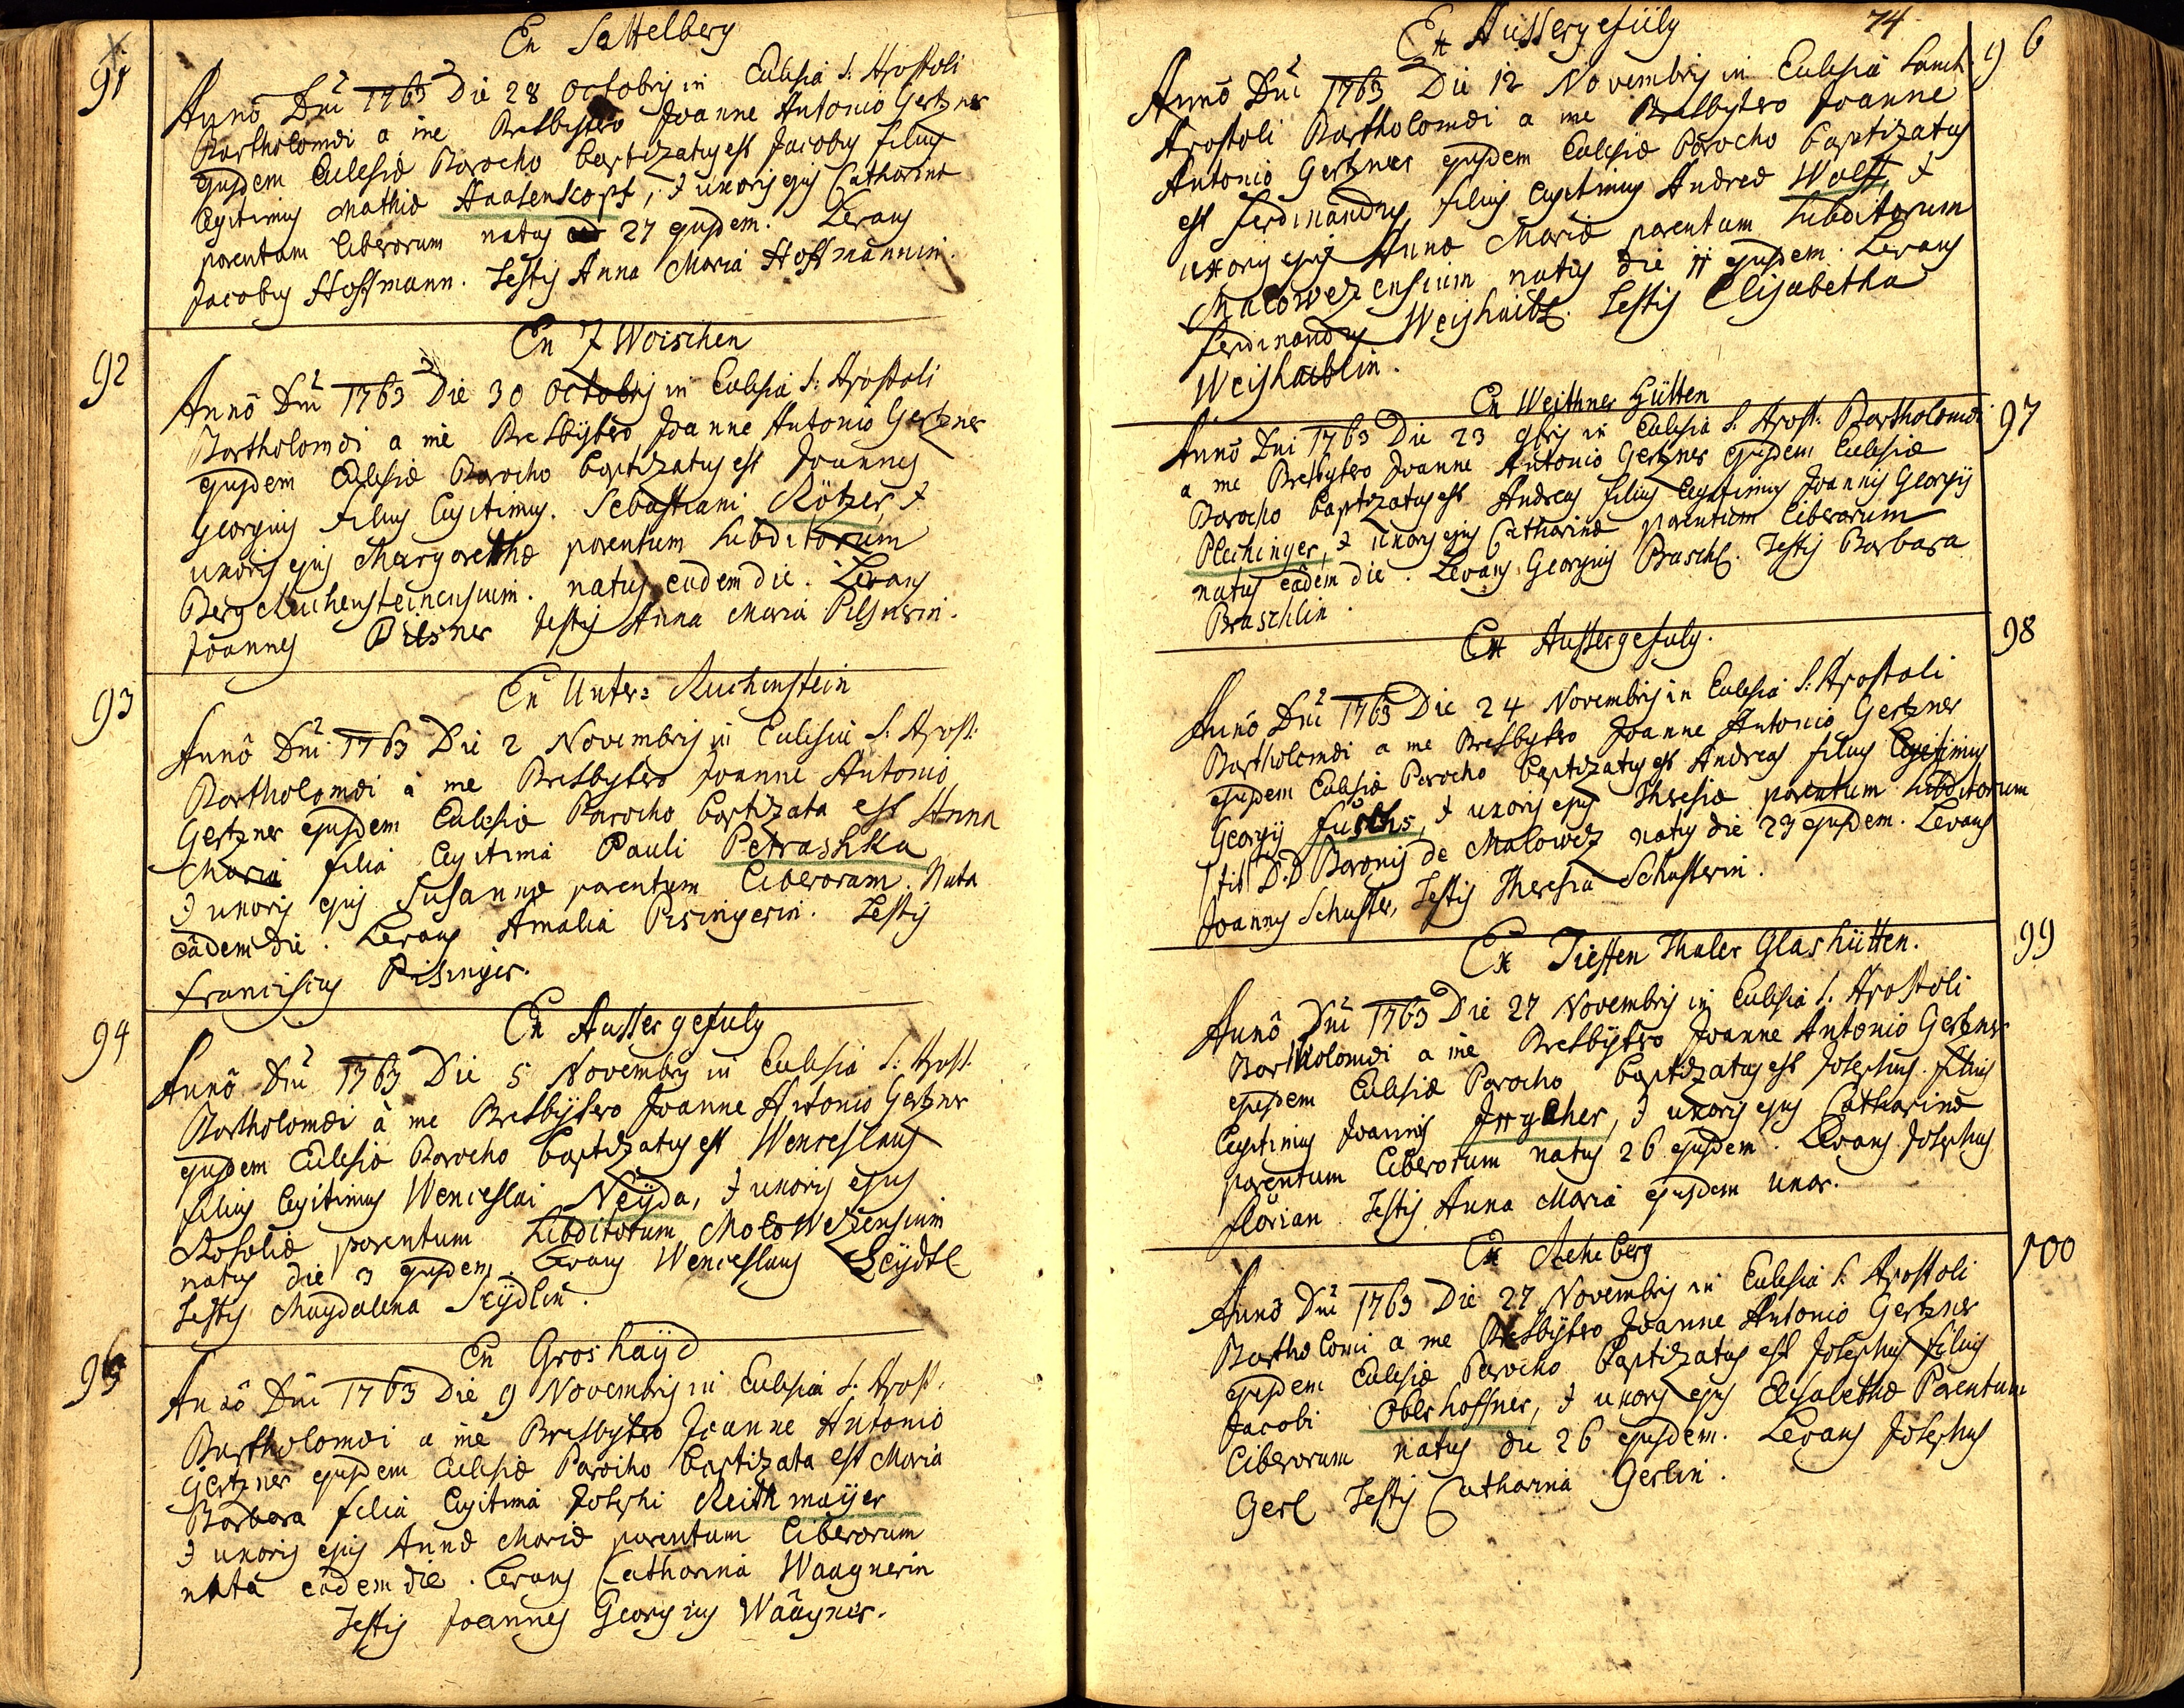 91
Ex Sattelberg
Anno Dni 1763 Die 28 Octobris in Eclesia S. Apostoli
Bartholomæi a me Presbÿtero Joanne Antonio Gertzner
ejusdem Eclesiæ Parocho baptizatus est Jacobus filius
legitimus Mathiæ Haasenkopf, & uxoris ejus Catharinæ
parentum liberorum natus 27 ejusdem. Levans
Jacobus Hoffmann. Testis Anna Maria Hoffmannin.
92
Ex Zwoischen
Anno Dni 1763 Die 30 Octobris in Eclesia S: Apostoli
Bartholomæi a me Presbÿtero Joanne Antonio Gertzner
ejusdem Eclesiæ Parocho baptizatus est Joannes
Georgius filius legitimus. Sebastiani Rötzer, &
uxoris ejus Margarethæ parentum subditorum
Berg Reichensteinensium. natus eadem die. Levans
Joannes Pilsner Testis Anna Maria Pilsnerin.
93
Ex Unter= Reichenstein
Anno Dni 1763 Die 2 Novembris in Eclesia S. Apost:
Bartholomæi a me Presbÿtero Joanne Antonio
Gertzner ejusdem Eclesiæ Parocho baptizata est Anna
Maria filia legitima Pauli Petrashka
& uxoris ejus Susannæ parentum liberorum. Nata
eâdem die. Levans Amalia Pisingerin. Testis
Franciscus Pisinger.
94
Ex Aussergefuld
Anno Dni 1763 Die 5 Novembris in Eclesia S: Apost.
Bartholomæi à me Presbÿtero Joanne Antonio Gertzner
ejusdem Eclesiæ Parocho baptizatus est Wenceslaus
filius legitimus Wenceslai Neÿda, & uxoris ejus
Rosaliæ parentum subditorum Malowezensium
natus die 3 ejusdem. Levans Wenceslaus Seÿdl
Testis Magdalena Seÿdlin.
95
Ex Groshaÿd
Anno Dni 1763 Die 9 Novembris in Eclesia S. Apost.
Bartholomæi a me Presbytero Joanne Antonio
Gertzner ejusdem Eclesiæ Parocho baptizata est Maria
Barbara filia legitima Josephi Reithmaÿer
& uxoris ejus Annæ Mariæ parentum liberorum
nata eâdem die. Levans Catharina Waagnerin
Testis Joannes Georgius Waagner.
74
96
Ex Aussergefüld
Anno Dni 1763 Die 12 Novembris in Eclesia Sancti
Apostoli Bartholomæi a me Presbÿtero Joanne
Antonio Gertzner ejusdem Eclesiæ Parocho baptizatus
est Ferdinandus filius legitimus Andreæ Wolff, &
uxoris ejus Annæ Mariæ parentum subditorum
Malowezensium natus die 11 ejusdem. Levans
Ferdinandus Weishaibl. Testis Elisabetha
Weishaiblin.
97
Ex Weithner Hütten
Anno Dni 1763 Die 23 9bris in Eclesia S. Apost. Bartholomæi
a me Presbÿtero Joanne Antonio Gertzner ejusdem Eclesiæ
Parocho baptizatus est Andreas filius legitimus Joannis Georgÿ
Plechinger, & uxoris ejus Catharinæ parentum liberorum
natus eâdem die. Levans Georgius Praschl. Testis Barbara
Praschlin.
98
Ex Aussergefuld.
Anno Dni 1763 Die 24 Novembris in Eclesia S: Apostoli
Bartholomæi a me Presbÿtero Joanne Antonio Gertzner
ejusdem Eclesiæ Parocho baptizatus est Andreas filius legitimus
Georgÿ Fuchs, & uxoris ejus Theresiæ parentum subditorum
tit D.D Baronis de Malowez natus die 23 ejusdem. Levans
Joannes Schuster, Testis Theresia Schusterin.
99
Ex Tieffen Thaler Glashütten.
Anno Dni 1763 Die 27 Novembris in Eclesia S. Apostoli
Bartholomæi a me Presbÿtero Joanne Antonio Gertzner
ejusdem Eclesiæ Parocho baptizatus est Josephus filius
legitimus Joannis Irgaher, & uxoris ejus Catharinæ
parentum liberorum natus 26 ejusdem. Levans Josephus
Florian. Testis Anna Maria ejusdem uxor.
100
Ex Reheberg
Anno Dni 1763 Die 27 Novembris in Eclesia S. Apostoli
Bartholomi a me Presbÿtero Joanne Antonio Gertzner
ejusdem Eclesiæ Parocho baptizatus est Josephus filius
Jacobi Oberhoffner, & uxoris ejus Elisabethæ Parentum
liberorum natus die 26 ejusdem. Levans Josephus
Gerl Testis Catharina Gerlin.